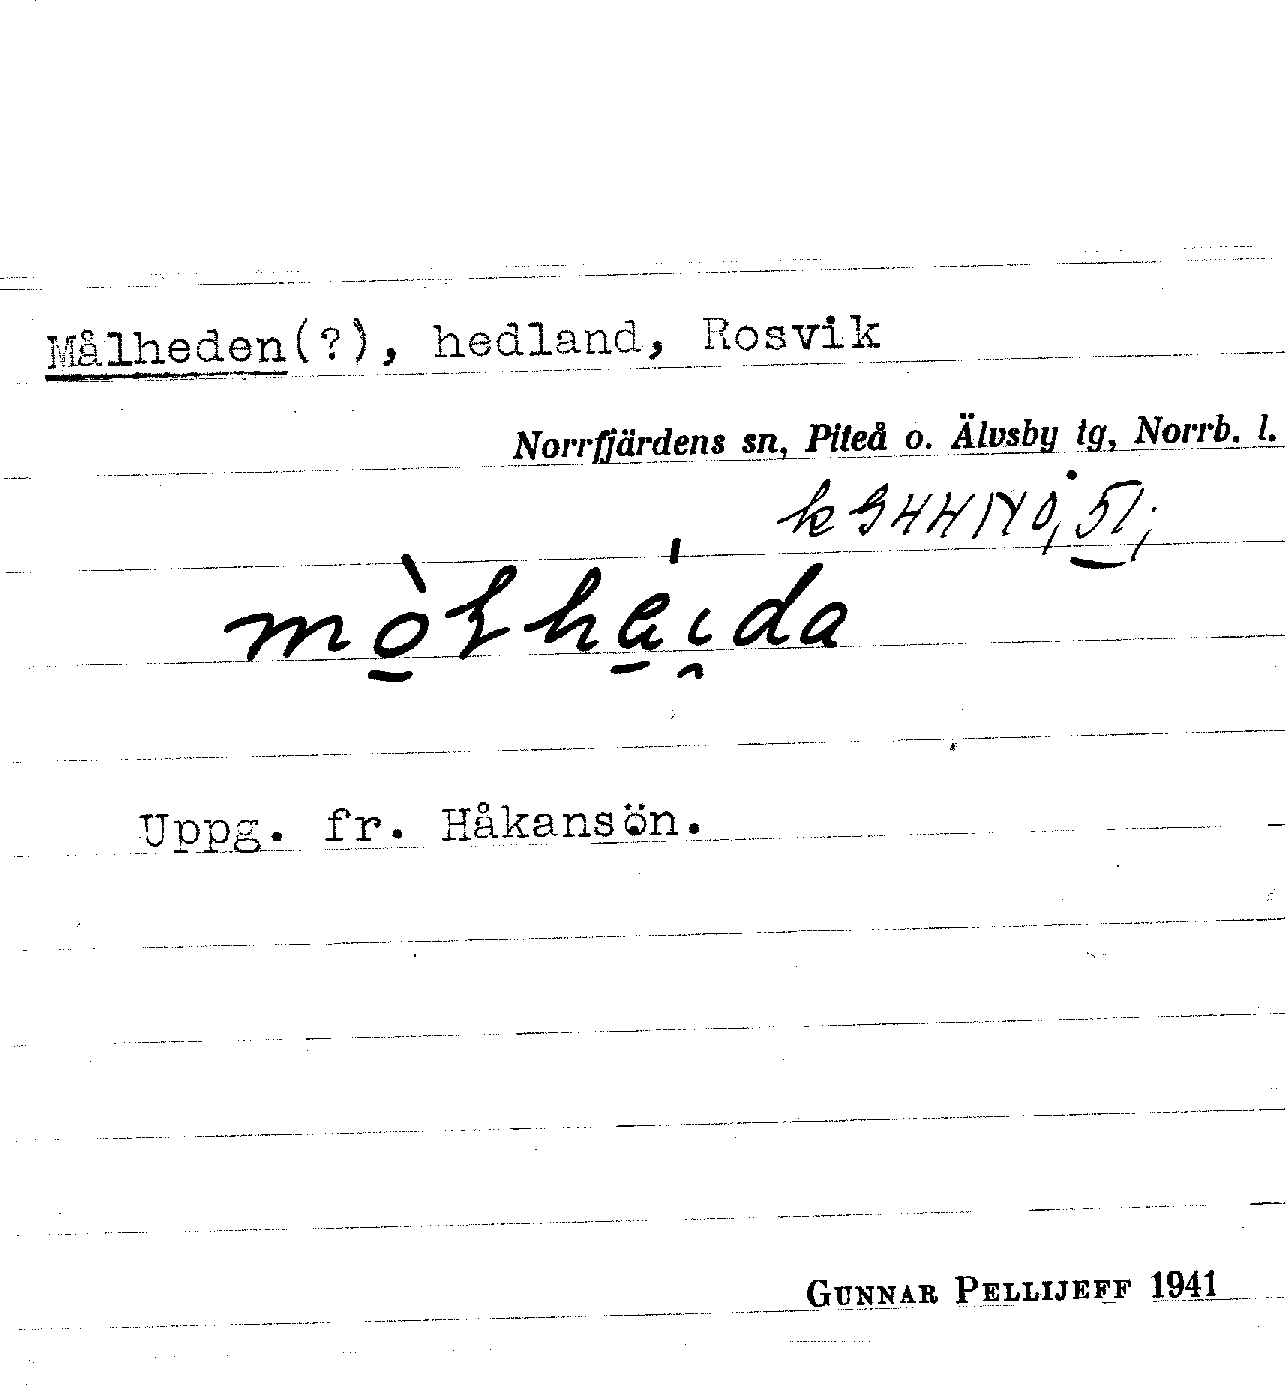 Målheden(?), hedland, Rosvik
Norrfjärdens sn, Piteå o. Älvsby tg, Norrb. l.
Uppg. fr. Håkansön.
GUNNAR PELLIJEFF 1941